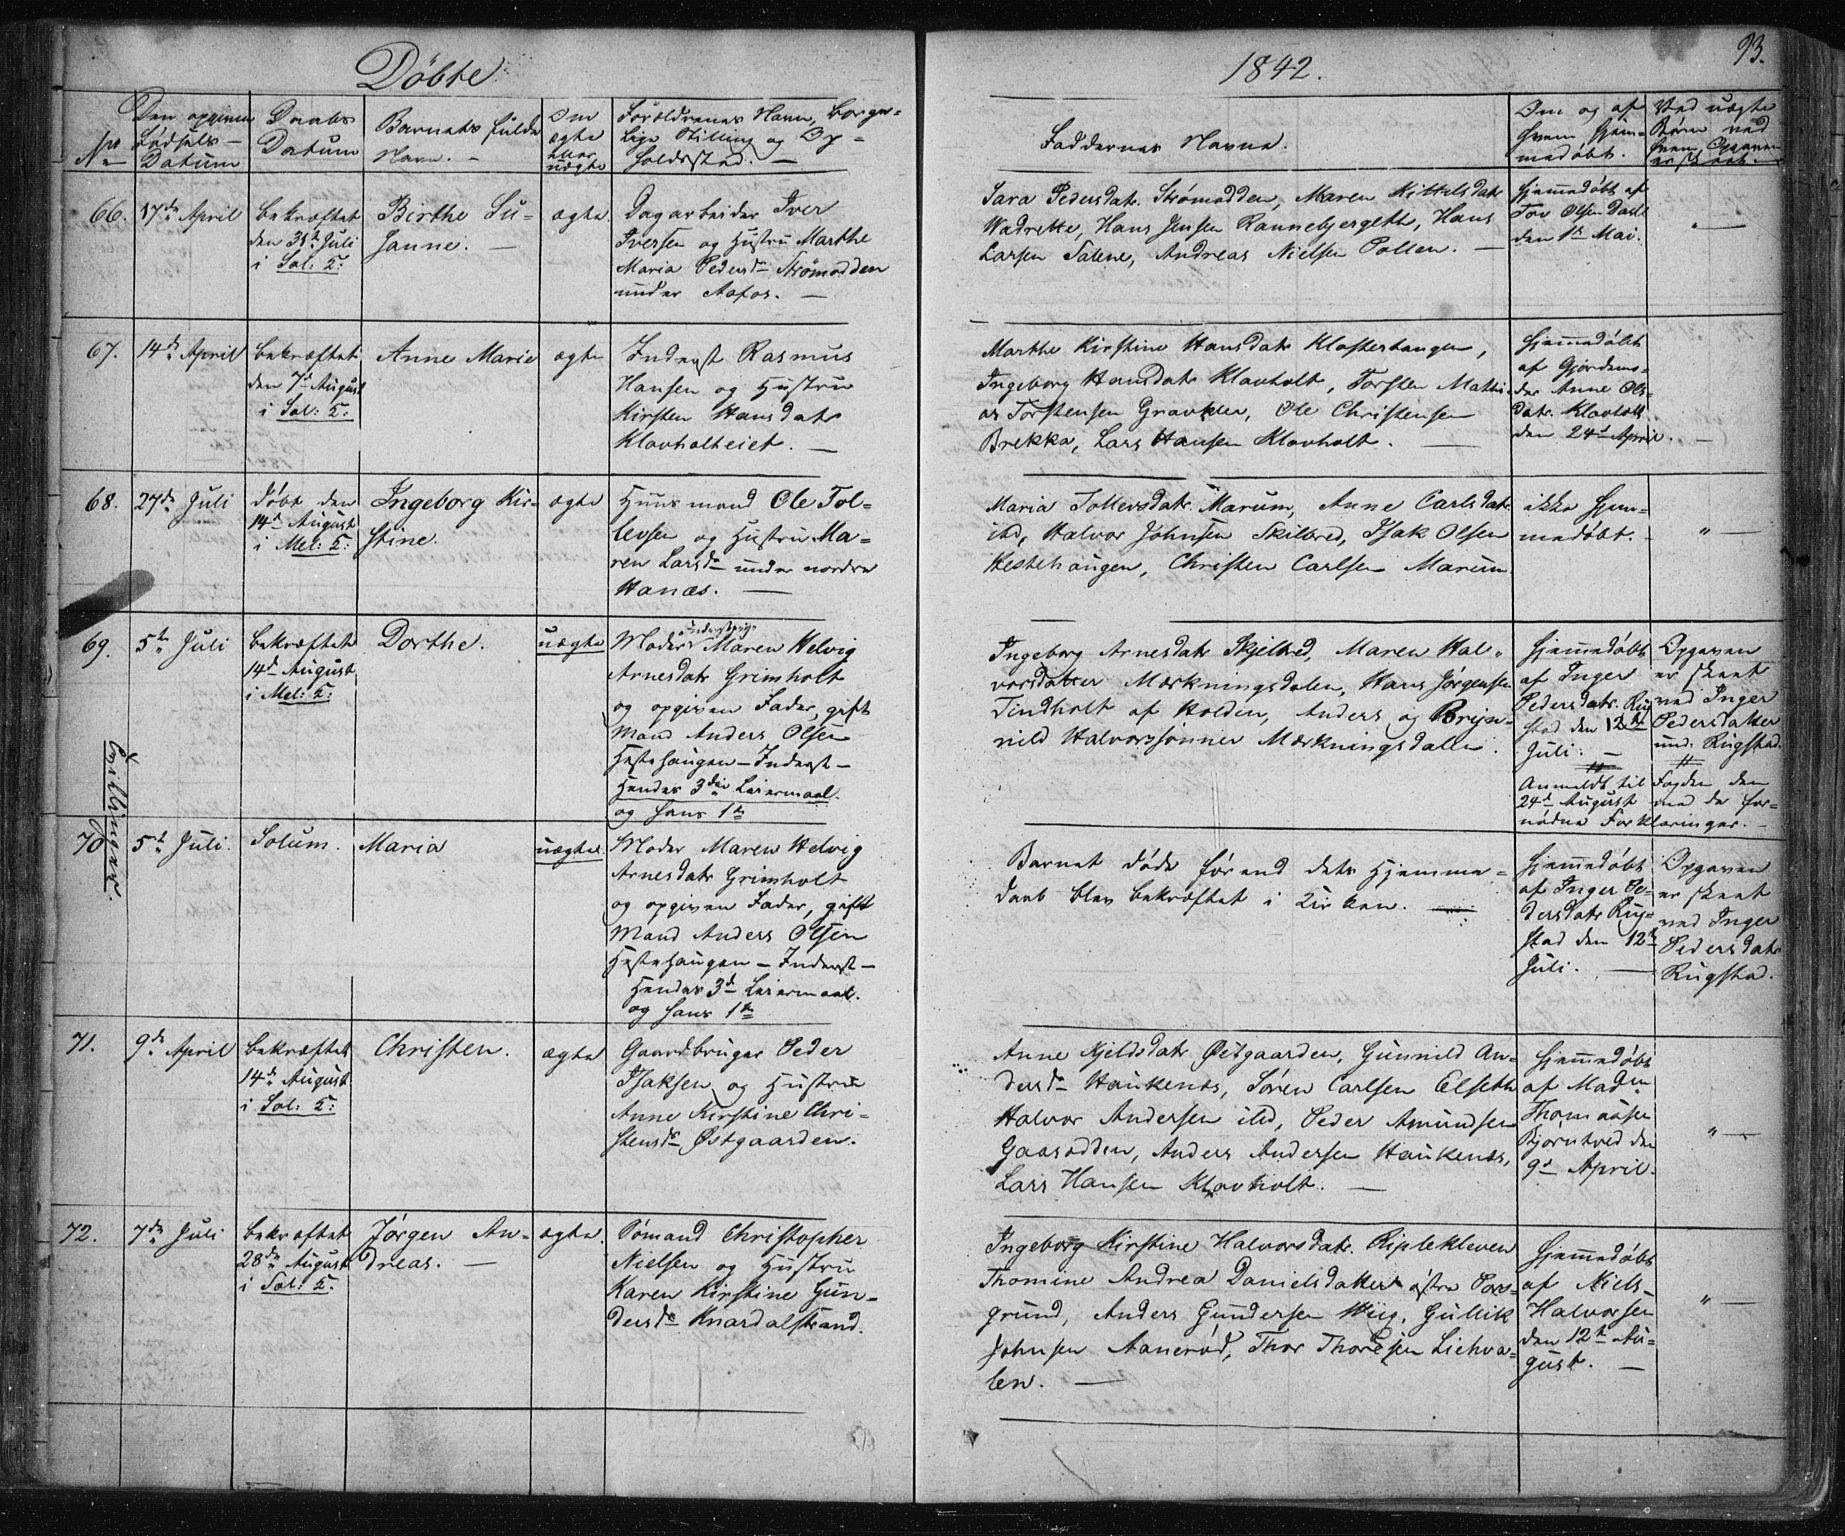 Döbte
1842.
93.
No
Den opgivne
Födsels-
Datum
Daabs
Datum
Barnets fulde
Navn. -
Om
ægte
eller
uægte
Forældrenes Navn, borger-
lige Stilling og Op-
holdssted. -
Faddernes Navne.
Om og af
hvem hjem-
medöbt.
Ved uægte
Börn ved
hvem Opgaven
er skeet.
66.
17de April
bekræftet
den 31te Juli
i Sol: K:
Birthe Su-
sanne. -
ægte
Dagarbeider Iver
Iversen og Hustru Marthe
Maria Pedersdr Strömodden
under Aafos. -
Sara Pedersdatr Strömodden, Maren Kittilsdatr
Wadrette, Hans Jensen Rannebjergeth, Hans
Larsen Salene, Andreas Nielsen Pollen. -
hjemmedöbt af
Tov Olsen Dahl
den 1te Mai.
" -
67.
14de April
bekræftet
den 7de August
i Sol: K:
Anne Marie
ægte
Inderst Rasmus
Hansen og Hustru
Kirsten Hansdatr
Klovholteiet. -
Marthe Kirstine Hansdatr Klosterhaugen,
Ingeborg Hansdatr Klovholt, Torsten Mathi-
as Torstensen Gravklev, Ole Christensen
Brekka, Lars Hansen Klovholt. -
hjemmedöbt
af Gjordemo-
der Anne Ols-
datr. Klovholt
den 24de April. -
68.
27de Juli
döbt den
14de August
i Mel: K:
Ingeborg Kir-
stine.
ægte
Huusmand Ole Tol-
levsen og Hustru Ma-
ren Larsdr under nordre
Hanæs. -
Maria Tollevsdatr. Marum, Anne Carlsdatr
ibd, Halvor Johnsen Skilbred, Isak Olsen
Hestehaugen, Christen Carlsen Marum
ikke hjem-
medöbt.
" -
69.
5te Juli
bekræftet
14de August
i Mel: K:
Dorthe.
uægte
Moder Inderstpige Maren Helvig
Arnesdatr Grimholt
og opgiven Fader, gift
Mand Anders Olsen
Hestehaugen - Inderst -
Hendes 3die Leiermaal
og hans 1te
Ingeborg Arnesdatr Skjelbred, Maren Hal-
vorsdatter Mærkningsdalen, Hans Jörgensen
Tindholt af Holden, Anders og Brijn-
nild Halvorssönner Mærkningsdalen.
hjemmedöbt
af Inger
Pedersdatr. Rug-
stad den 12te
Juli. -
Anmeldt til
24de August
Opgaven
er skeet
ved Inger
Pedersdatter
und: Rugstad.
Fogden den
med de for-
nödne Forklaringer. -
Tvillinger.
70
5te Juli.
Solum.
Maria
uægte
Moder Maren Helvig
Arnesdatr Grimholt
og opgiven Fader, gift
Mand Anders Olsen
Hestehaugen - Inderst -
Hendes 3de Leiermaal.
og hans 1te
Barnet döde förend dets Hjemme-
daab blev bekræftet i Kirken.
hjemmedöbt
af Inger Pe-
dersdatr Rug-
stad den 12te
Juli. -
Opgaven
er skeet
ved Inger
Pedersdatr
Rugstad.
71.
9de April
bekræftet
14de August
i Sol: K:
Christen.
ægte
Gaardbruger Peder
Isaksen og Hustru
Anne Kirstine Chri-
stensdr Östgaarden.
Anne Kjeldsdatr Östgaarden, Gunnild An-
dersdr Haukenæs, Sören Carlsen Elseth
Halvor Andersen ibd, Peder Amundsen
Gaasodden, Anders Andersen Haukenæs,
Lars Hansen Klovholt. -
hjemmedöbt
af Madm
Thomassen
Bjørntved den
9de April.
" -
72.
7de Juli
bekræftet
28de August
i Sol: K.
Jörgen An-
dreas. -
ægte.
Sömand Christopher
Nielsen og Hustru
Karen Kirstine Gun-
dersdr Knardalstrand.
Ingeborg Kirstine Halvorsdatr. Riplekleven
Thomine Andrea Danielsdatter östre Pors-
grund, Anders Gundersen Wiig, Gullik
Johnsen Aaneröd, Thor Thoresen Liehva-
len. -
hjemmedöbt
af Niels
Halvorsen
den 12te Au-
gust. -
" -